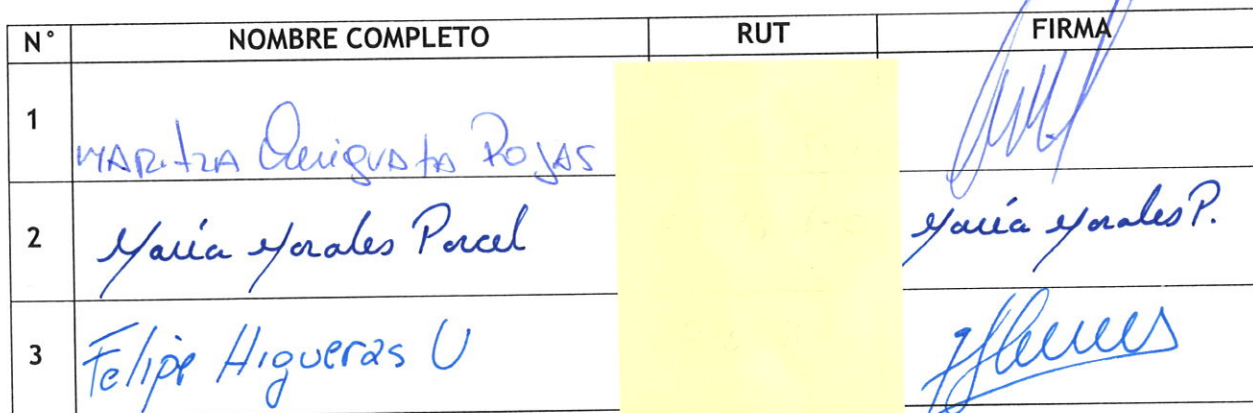 N° NOMBRE COMPLETO RUT FIRMA
1 MARITZA Quiguata ROJAS
2 María Morales Porcel María Morales P.
3 Felipe Higueras U